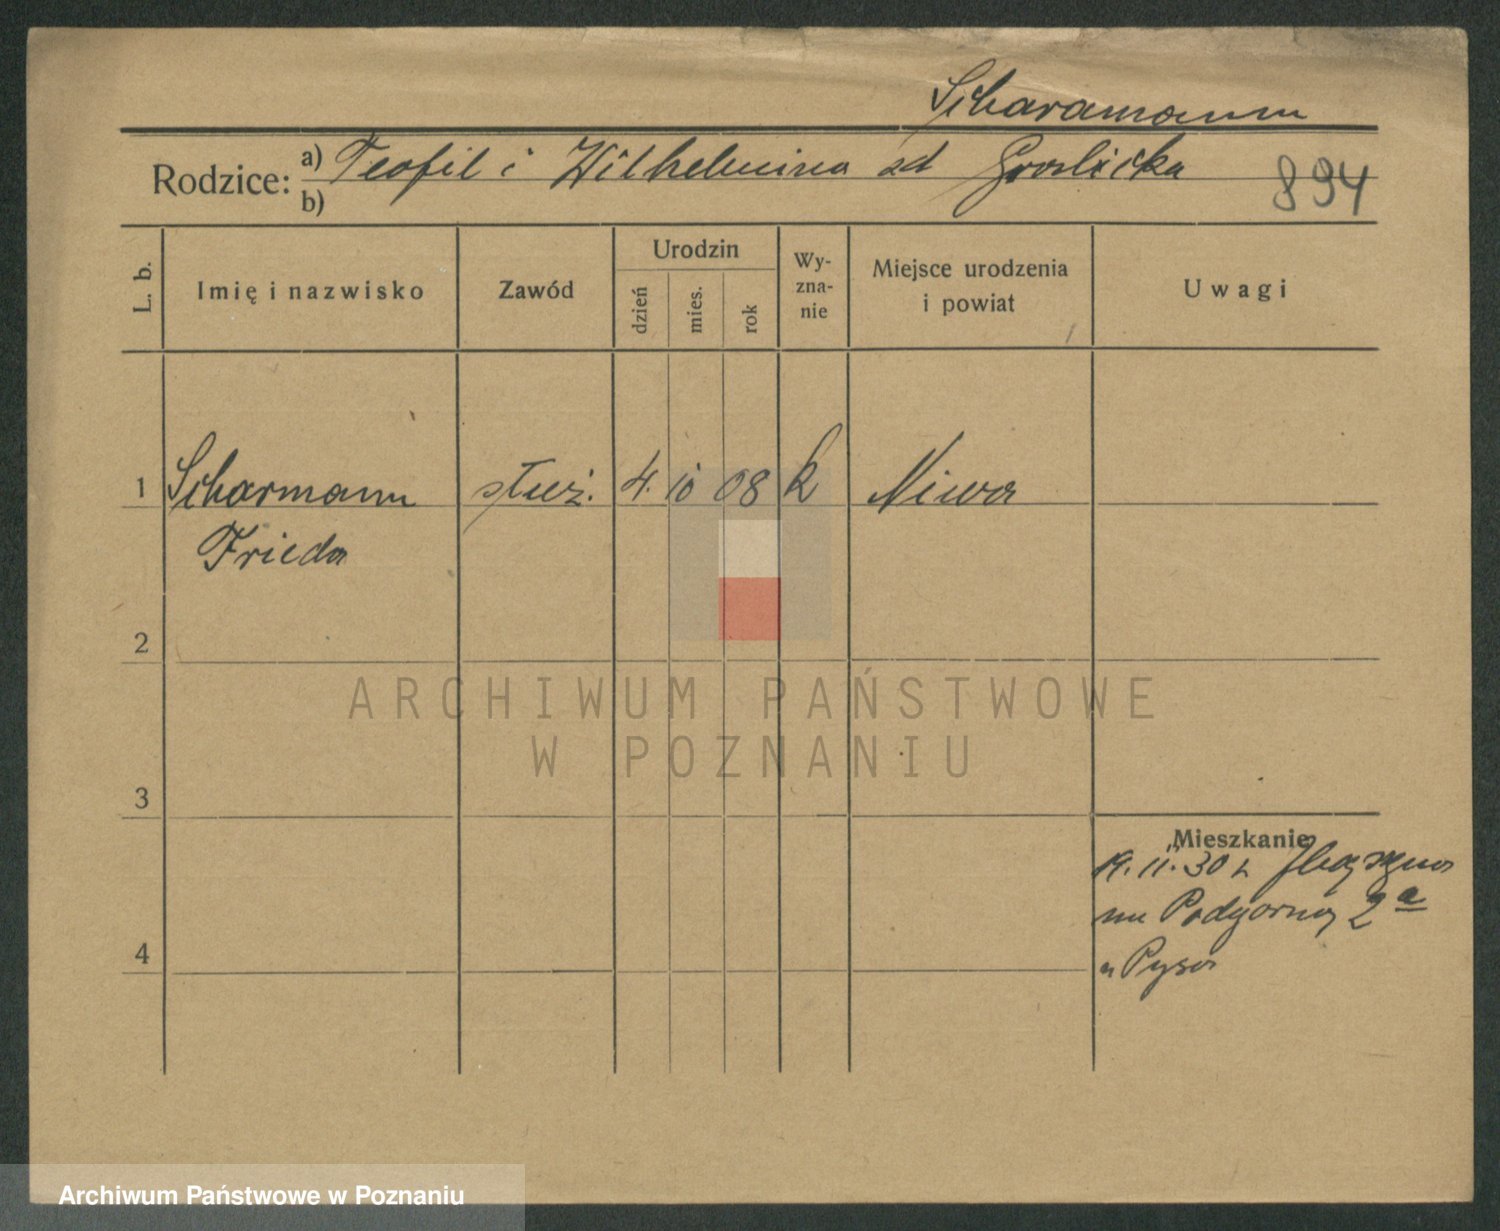 Scharamann
Rodzice: a) Teofil i Wilhelmina zd Groslicka
b)
894
L. b.
Imię i nazwisko
Zawód
Urodzin
dzień
mies.
rok
Wy-
zna-
nie
Miejsce urodzenia
i powiat
Uwagi
1 Scharmann służ. 4. 10 08 k Niwa
Frieda
2
ARCHIWUM PAŃSTWOWE
W POZNANIU
3
Mieszkanie
19. 11. 30 z
na Podgórną 2a
u Pysa
4
Archiwum Państwowe w Poznaniu